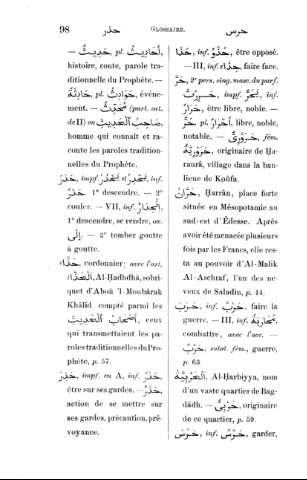 98 حدر GLOSSAIRE. حرس
— حَدِيثٌ, pl. أَحَادِيثُ,
histoire, conte, parole tra-
ditionnelle du Prophète. —
حَادِثَةٌ, pl. حَوَادِثُ, événe-
ment. — مُحَدِّثٌ (part. act.
de II) ou صَاحِبُ ٱلْحَدِيثِ
homme qui connaît et ra-
conte les paroles tradition-
nelles du Prophète.
حَدَرَ, impf. يَحْدُرُ et يَحْدِرُ, inf.
حَدْرٌ 1° descendre. — 2°
couler. — VII, inf. اِنْحِدَارٌ,
1° descendre, se rendre, ac.
إِلَى — 2° tomber goutte
à goutte.
حَذَّاءٌ, cordonnier; avec l'art.
ٱلْحَذَّاءُ, Al-Ḥadhdhâ, sobri-
quet d'Aboû 'l-Moubârak
Khâlid compté parmi les
أَصْحَابُ ٱلْحَدِيثِ, ceux
qui transmettaient les pa-
roles traditionnelles du Pro-
phète, p. 57.
حَذِرَ, impf. en A, inf. حَذَرٌ,
être sur ses gardes. — حَذَرٌ,
action de se mettre sur
ses gardes, précaution, pré-
voyance.
حَذَا, inf. حَذْوٌ, être opposé.
— III, inf. حِذَاءٌ, faire face.
حَرَّ, 2° pers. sing. masc. du parf.
حَرِرْتَ, impf. يَحَرُّ, inf.
حَرَارٌ, être libre, noble. —
حُرٌّ pl. أَحْرَارٌ, libre, noble,
notable. — حَرُورِيٌّ, fém.
حَرُورِيَّةٌ, originaire de Ḥa-
raurâ, village dans la ban-
lieue de Koûfa.
حَرَّانُ, Ḥarrân, place forte
située en Mésopotamie au
sud-est d'Édesse. Après
avoir été menacée plusieurs
fois par les Francs, elle res-
ta au pouvoir d'Al-Malik
Al-Aschraf, l'un des ne-
veux de Saladin, p. 44.
حَرَبَ, inf. حَرْبٌ, faire la
guerre. — III, inf. مُحَارَبَةٌ,
combattre, avec l'acc. —
حَرْبٌ, subst. fém., guerre,
p. 63
ٱلْحَرْبِيَّةُ, Al-Ḥarbiyya, nom
d'un vaste quartier de Bag-
dâdh. — حَرْبِيٌّ, originaire
de ce quartier, p. 59.
حَرَسَ, inf. حَرْسٌ, garder,